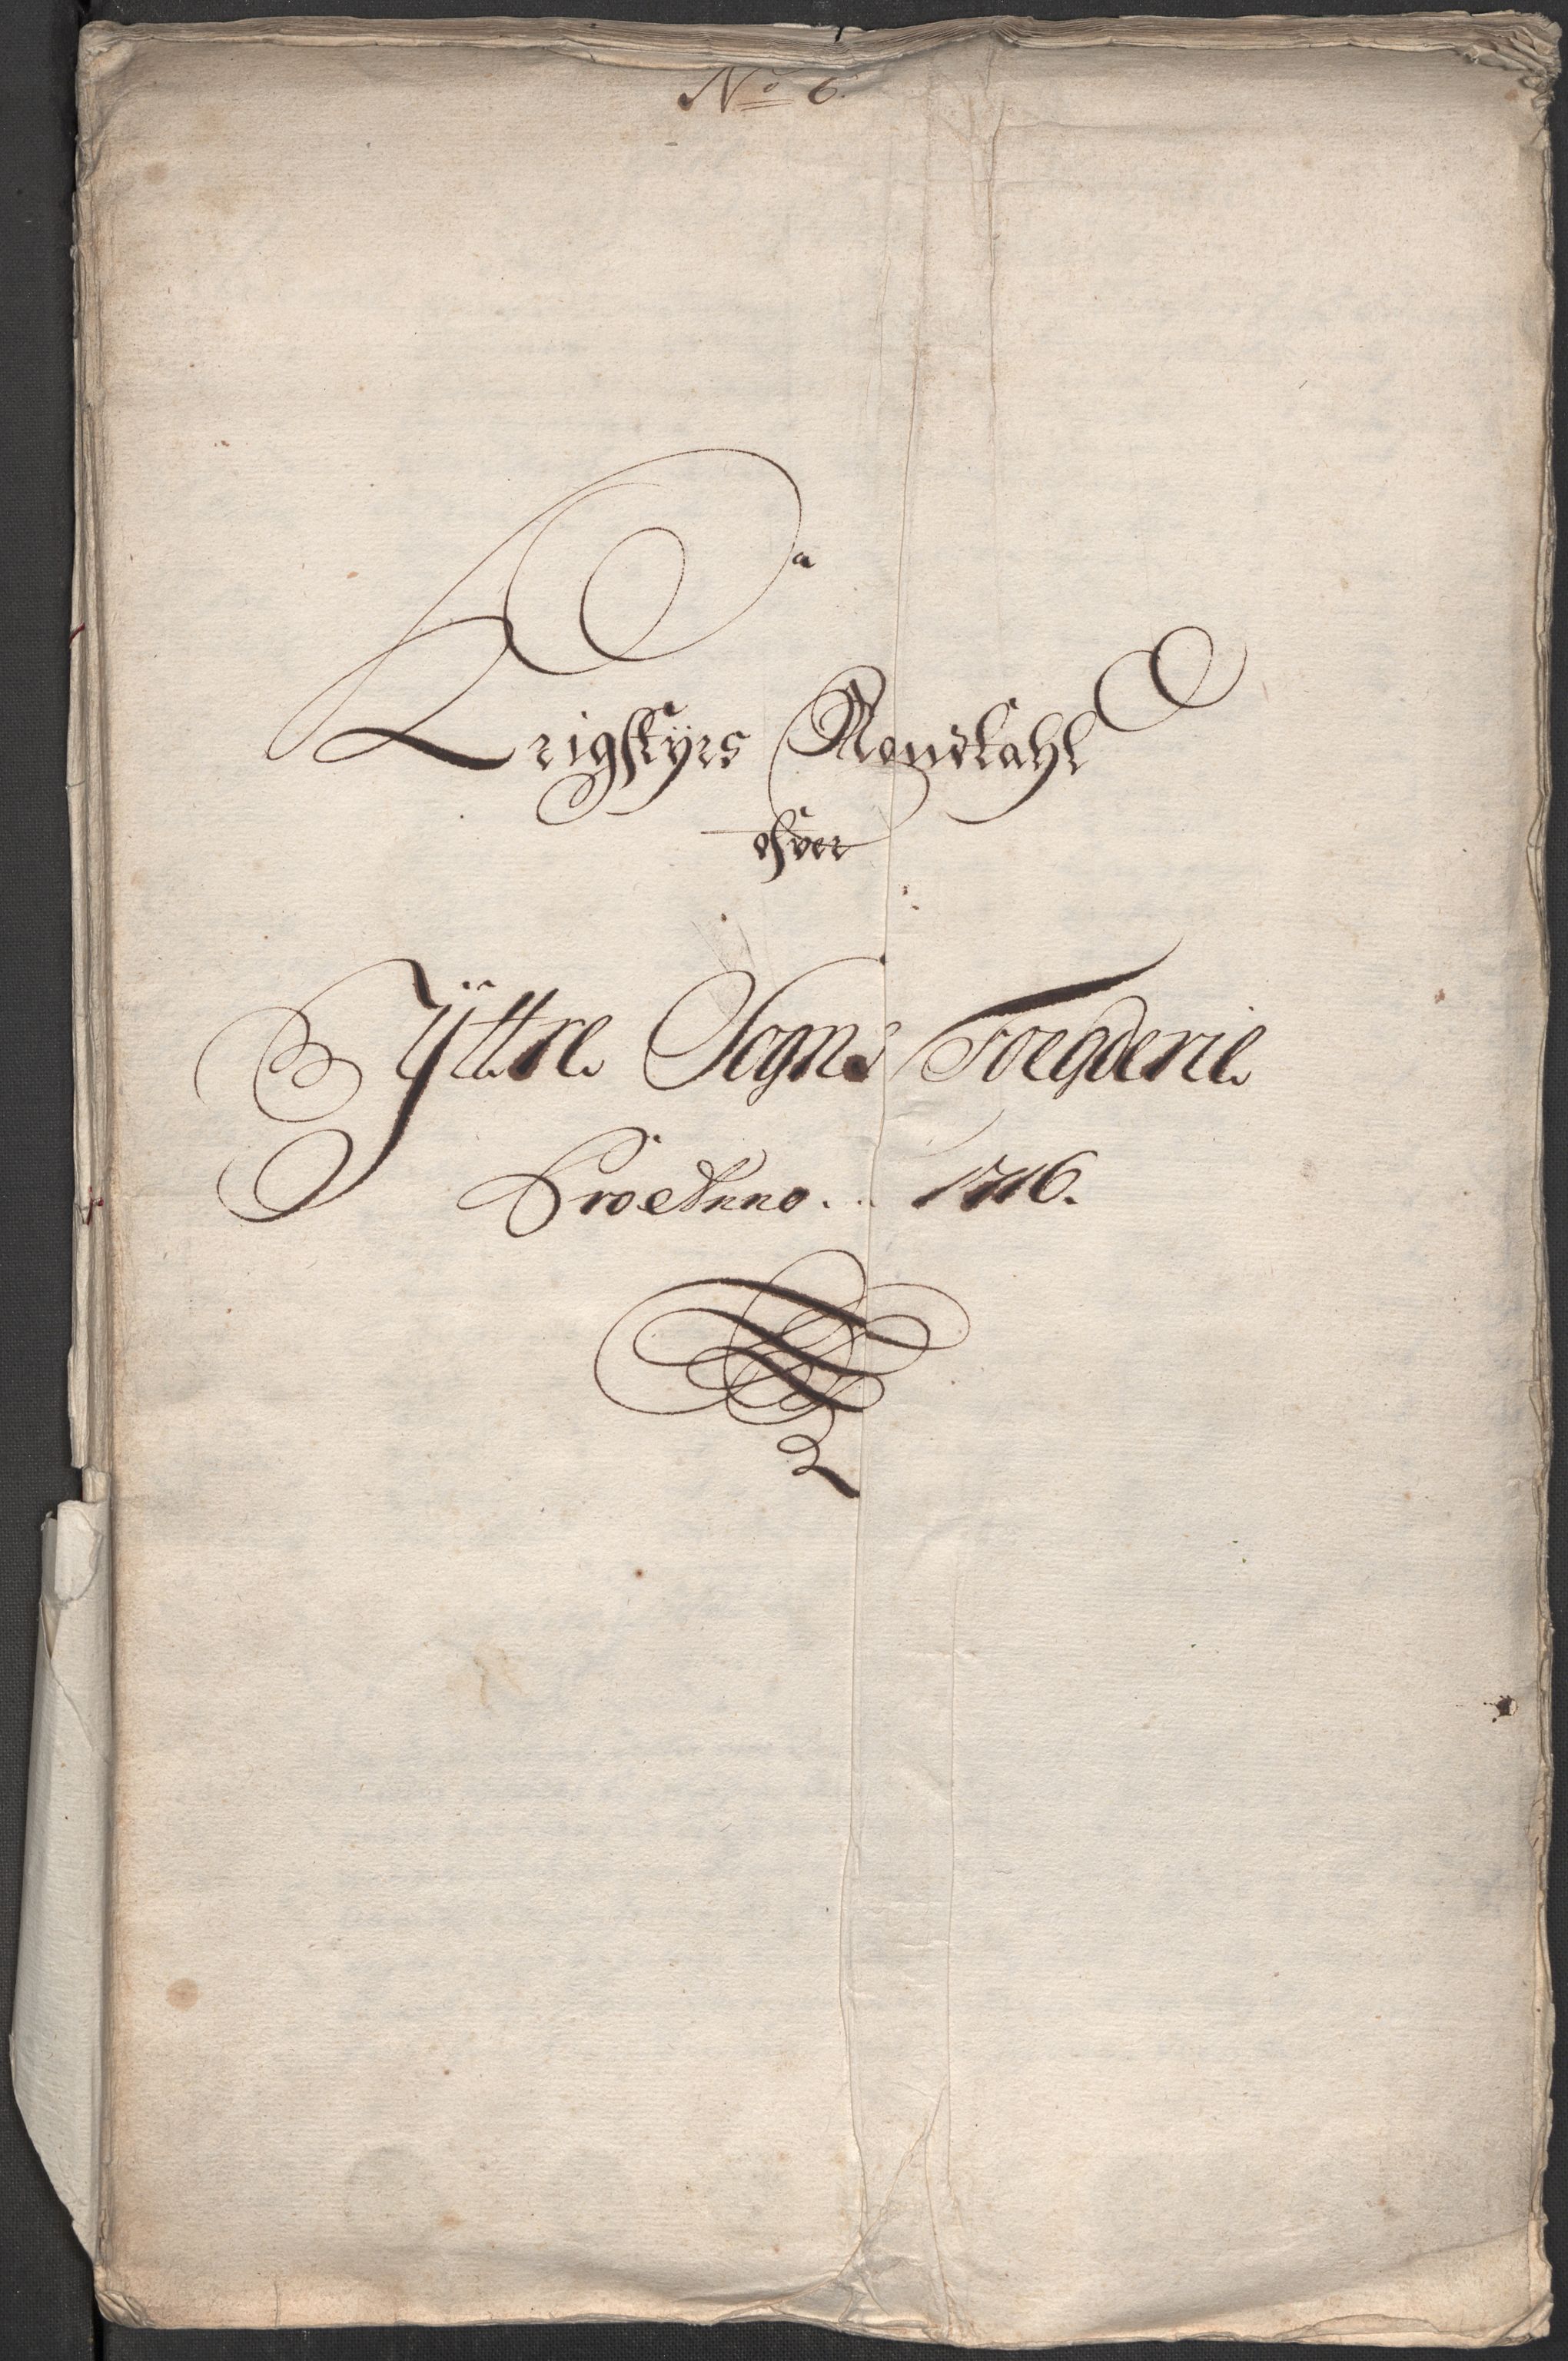 No 6.
Krigstÿrs Mandtahl
ofver
Ÿttre Sogns Foegderie
Pro Anno .. 1716.